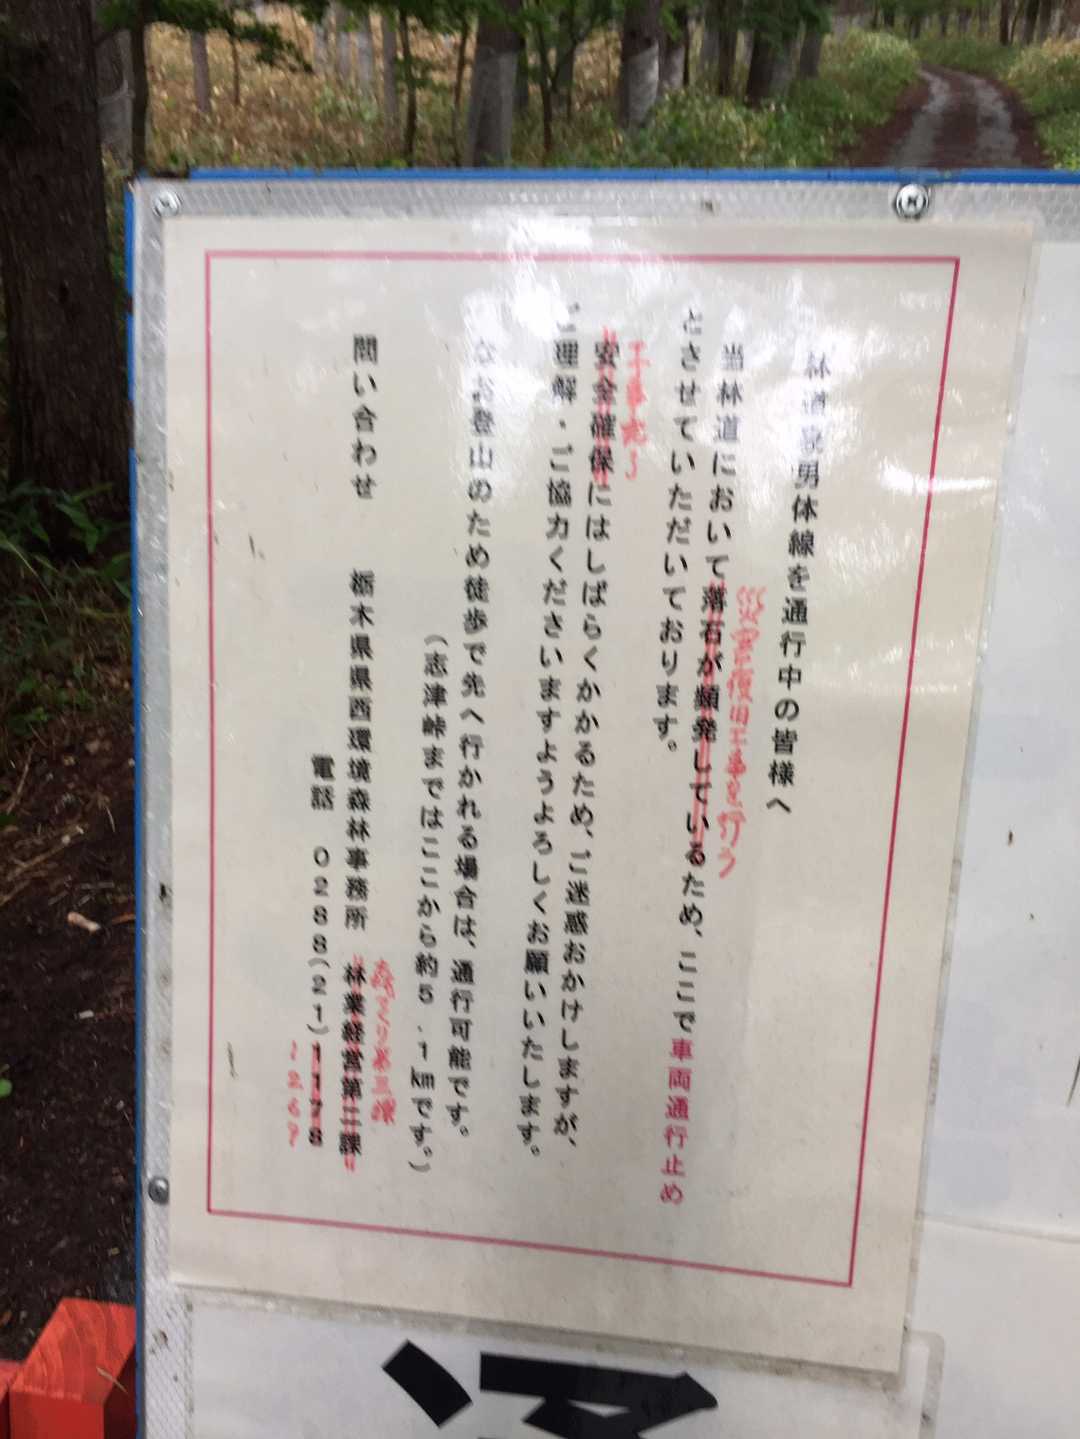 林道裏男体線を通行中の皆様へ
災害復旧工事を行う
当林道において落石が頻発しているため、ここで車両通行止め
とさせていただいております。
工事完了
安全確保にはしばらくかかるため、ご迷惑おかけしますが、
ご理解・ご協力くださいますようよろしくお願いいたします。
なお登山のため徒歩で先へ行かれる場合は、通行可能です。
(志津峠まではここから約5.1kmです。)
森づくり第三課
問い合わせ 栃木県県西環境森林事務所 林業経営第二課
電話 0288(21)1178
1269